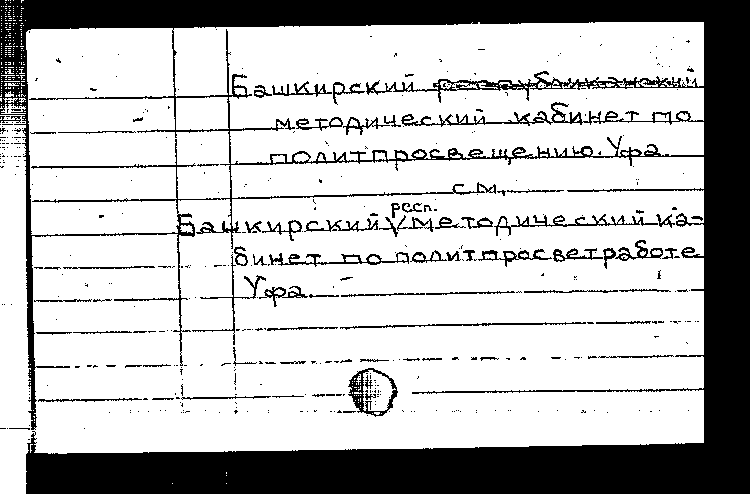 Башкирский республиканский
методический кабинет по
политпросвещению. Уфа.
см.
Башкирский респ. методический ка-
бинет по политпросветработе
Уфа.